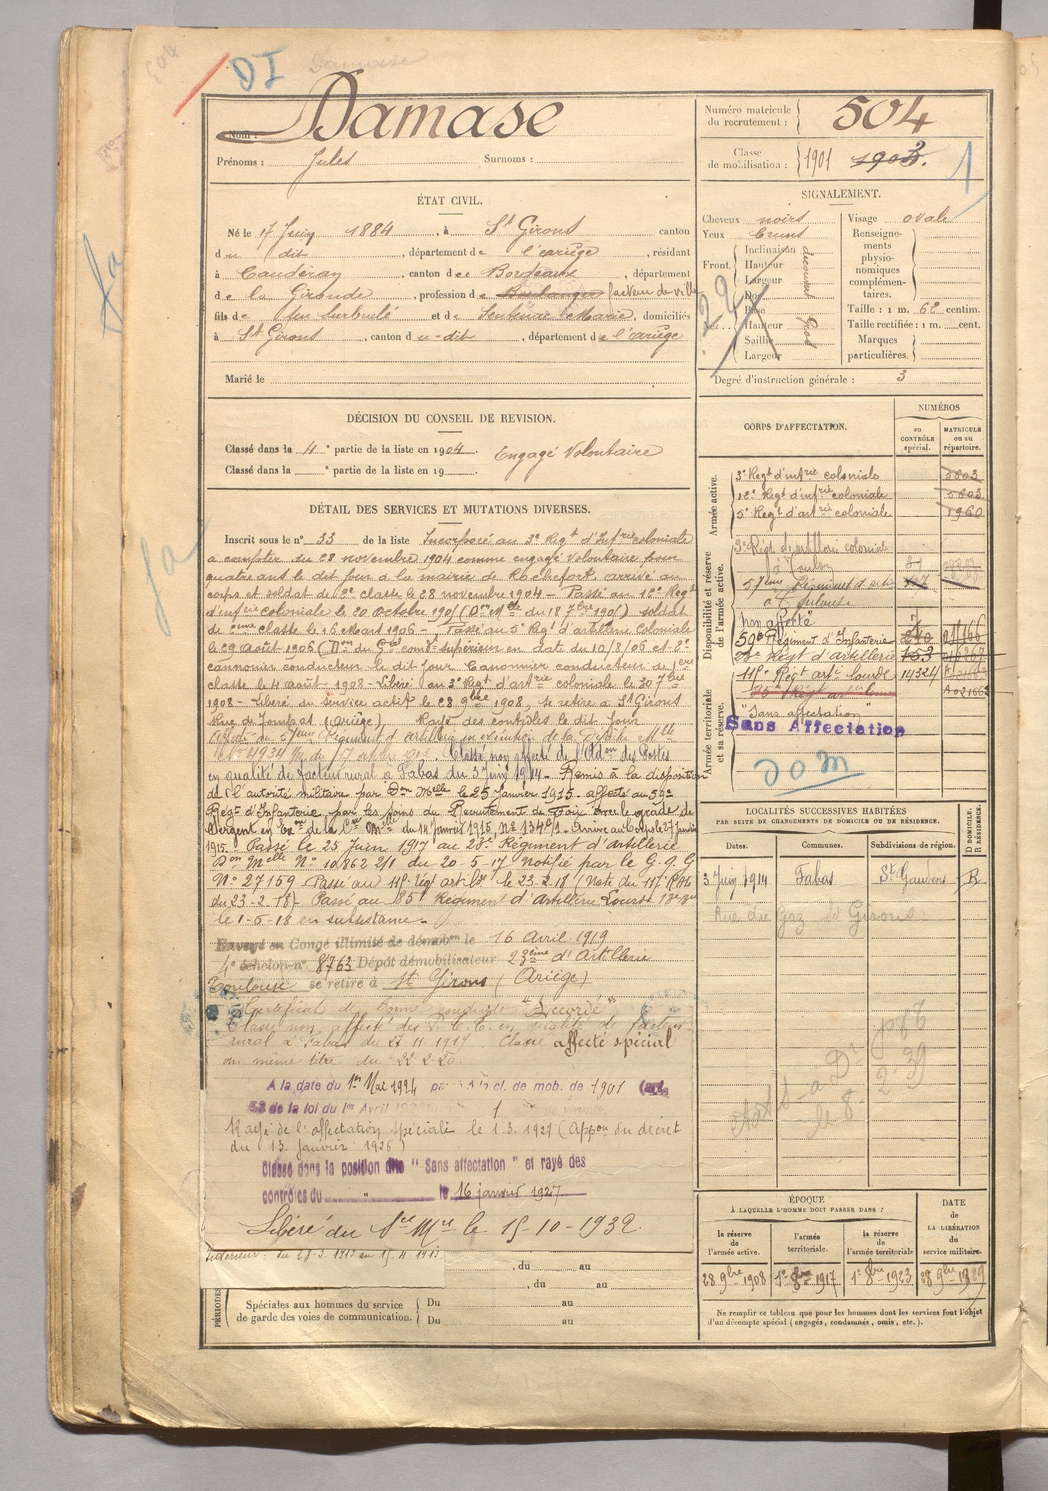 504
DI
Damase
Nom : Damase
Prénoms : Jules Surnoms :
Numéro matricule du recrutement : 504
Classe de mobilisation : 1901 1903.
1
ÉTAT CIVIL.
Né le 17 Juin 1884, à St Girons canton
du dit, département de l'ariège, résidant
à Caudéran, canton de Bordeaux, département
de la Gironde, profession de Boulanger facteur de ville
fils de feu Surbuilé et de Sentenac Marie, domiciliés
à St Girons, canton du-dit, département de l'ariège
Marié le
SIGNALEMENT.
Cheveux noirs
Yeux bruns
Front Inclinaison Hauteur Largeur découvert
Nez Dos Base Hauteur Saillie Largeur Gros
Visage ovale
Renseignements physionomiques complémentaires.
Taille : 1 m. 62 centim.
Taille rectifiée : 1 m. cent.
Marques particulières.
Degré d'instruction générale : 3
DÉCISION DU CONSEIL DE REVISION.
Classé dans la 4e partie de la liste en 1904. Engagé Volontaire
Classé dans la e partie de la liste en 19
DÉTAIL DES SERVICES ET MUTATIONS DIVERSES.
Inscrit sous le n° 33 de la liste Incorporé au 3e Regt d'Infrie coloniale
a compter du 28 novembre 1904 comme engagé Volontaire pour
quatre ans le dit jour à la mairie de Rochefort, arrivé au
corps et soldat de 2e classe le 28 novembre 1904 - Passé au 12e Regt
d'infrie coloniale le 20 Octobre 1905 (Don Mlle du 18 7bre 1905) soldat
de 1ère classe le 16 Mars 1906 - Passé au 5e Regt d'artillerie coloniale
le 29 août 1906 (Don du Gal comt supérieur en date du 10/8/06 et 2e
cannonier conducteur le dit jour Canonnier conducteur de 1ère
classe le 4 août 1908 - Libéré au 3e Regt d'artrie coloniale le 30 7bre
1908 - Libéré du service actif le 28 9bre 1908, se retire à St Girons
Rue de Joumpas (Ariège) Rayé des contrôles le dit jour
Affecté au 57ème Régiment d'artillerie en exécution de la Dépêche Mlle
du 17 octobre 1912. Classé non affecté de l'Adon des Postes
en qualité de facteur rural à Fabas du 3 juin 1914. Remis à la disposition
de l'autorité militaire par Don Melle le 25 Janvier 1915. affecté au 59e
Régt d'Infanterie par les soins du Recrutement de Foix avec le grade de
Sergent en Exon de la Cre Melle du 14 janvier 1915, N° Arrivé au Corps le 27 janvier
1915. Passé le 25 Juin 1917 au 23e Régiment d'artillerie
Don Melle N° 10862 2/1 du 20-5-17 notifié par le G.Q.G
N° 27159 Passé au 117e Régt art. lde le 23.2.18 (Note du 117e RAL
du 23-2-18) - Passé au 85e Régiment d'Artillerie Lourde
le 1-6-18 en subsistance -
Envoyé en Congé illimité de démobon le 16 Avril 1919
4e échelon n° 8763 Dépôt démobilisateur 23ème d'Artillerie
Toulouse se retire à St Girons (Ariège)
Certificat de bonne conduite "Accordé"
Classé non affecté des P.T.T. en qualité de facteur
rural à Fabas du 27 11 1917 Classé affecté spécial
au même titre du 22-2-20.
A la date du 1er Mai 1924 passé à la cl. de mob. de 1901 (art.
58 de la loi du 1er Avril
Rayé de l'affectation spéciale le 1.3.1927 (Appon du décret
du 13 Janvier 1926)
Classé dans la position dite " Sans affectation " et rayé des
contrôles du " le 16 janvier 1927
Libéré du Sce Mre le 15-10-1932.
, du au
, du au
PÉRIODES
Spéciales aux hommes du service de garde des voies de communication. Du au
Du au
CORPS D'AFFECTATION.
NUMÉROS
au CONTRÔLE spécial.
MATRICULE ou au répertoire.
Armée active.
3e Regt d'infrie coloniale 5803
12e Regt d'infrie coloniale 5803
5e Regt d'artrie coloniale 1960
Disponibilité et réserve de l'armée active.
3e Régt d'artillerie coloniale
à Toulon
57ème Régiment d'artie
à Toulouse
Non affecté
59e Régiment d'Infanterie
23e Régt d'artillerie 153
117e Régt artie lourde 14324
85e Régt art. lourde
Armée territoriale et sa réserve.
"Sans affectation"
Sans Affectation
DOM
LOCALITÉS SUCCESSIVES HABITÉES
PAR SUITE DE CHANGEMENTS DE DOMICILE OU DE RÉSIDENCE.
Dates. Communes. Subdivisions de région. D DOMICILE. R RÉSIDENCE.
3 Juin 1914 Fabas St Gaudens R
Rue du Gaz St Girons
ÉPOQUE
À LAQUELLE L'HOMME DOIT PASSER DANS :
la réserve de l'armée active. l'armée territoriale. la réserve de l'armée territoriale
DATE de LA LIBÉRATION du service militaire.
28 9bre 1908 1er 8bre 1917 1er 8bre 1923 28 9bre 1929
Ne remplir ce tableau que pour les hommes dont les services font l'objet
d'un décompte spécial (engagés, condamnés, omis, etc.).